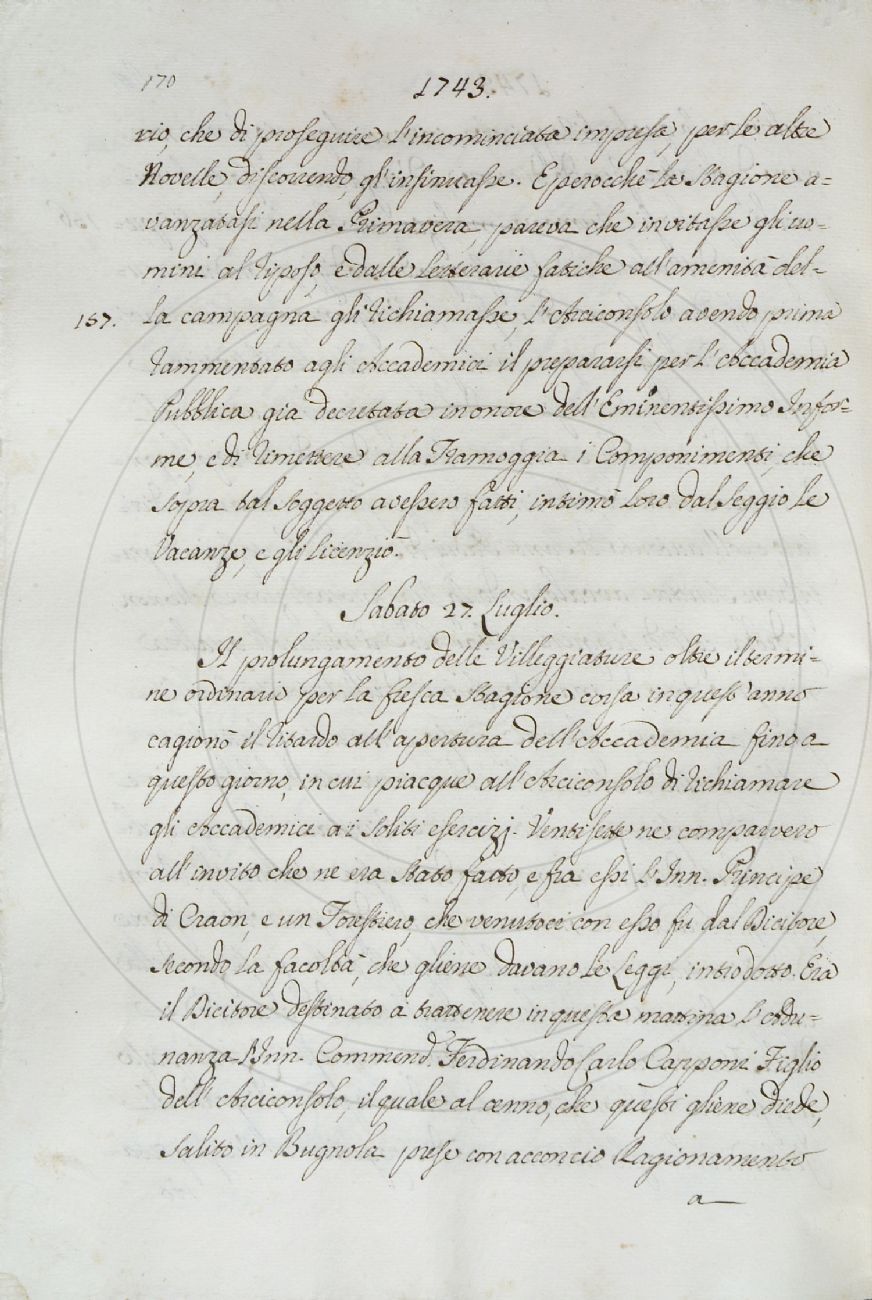 170
1743.
rio, che di proseguire l'incominciata impresa, per le altre
Novelle, discorrendo, gl'insinuasse. E perocchè la Stagione a=
vanzatasi nella Primavera, pareva che invitasse gli uo=
mini al riposo, e dalle letterarie fatiche all'amenità del=
157. la campagna gli richiamasse, l'Arciconsolo avendo prima
rammentato agli Accademici il prepararsi per l'Accademia
Pubblica già decretata in onore dell'Eminentissimo Infor=
me, e di rimettere alla Tramoggia i Componimenti, che
sopra tal soggetto avessero fatti, intimò loro dal seggio le
Vacanze, e gli licenziò.
Sabato 27. Luglio.
Il prolungamento delle Villeggiature oltre il termi=
ne ordinario per la fresca Stagione corsa in quest'anno
cagionò il ritardo all'apertura dell'Accademia fino a
questo giorno, in cui piacque all'Arciconsolo di richiamare
gli Accademici ai soliti esercizj. Ventisette ne comparvero
all'invito che ne era stato fatto, e fra essi l'Inn. Principe
di Craon, e un Forestiero, che venutoci con esso fu dal Dicitore,
secondo la facoltà, che gliene davano le Leggi, introdotto. Era
il Dicitore destinato a trattenere in questa mattina l'Adu=
nanza l'Inn. Commend.e Ferdinando Carlo Capponi Figlio
dell'Arciconsolo, il quale al cenno, che questi gliene diede,
salito in Bugnola prese con acconcio Ragionamento
a